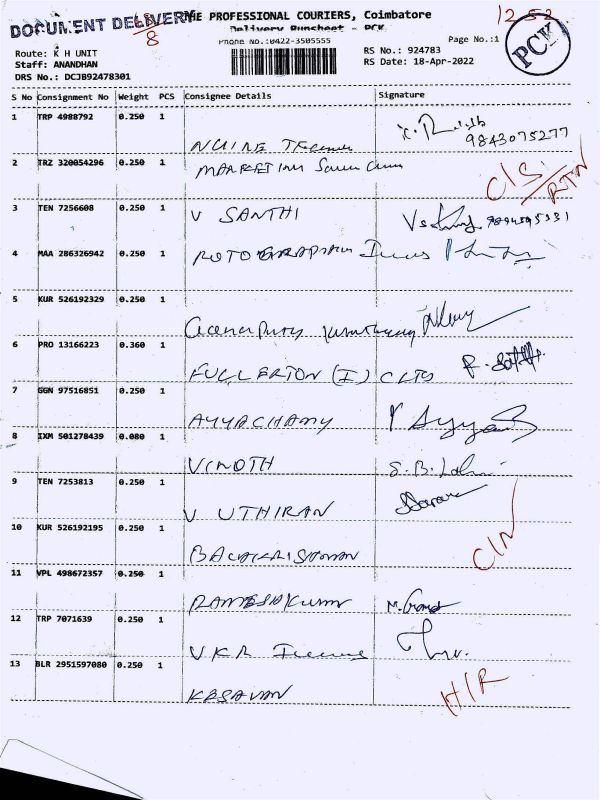 DOCUMENT DELIVERY THE PROFESSIONAL COURIERS, Coimbatore
8
12.52
Delivery Runsheet - PCK
Phone No.:0422-3505555
Page No.:1
PCK
Route: K H UNIT
RS No.: 924783
Staff: ANANDHAN
RS Date: 18-Apr-2022
DRS No.: DCJB92478301
S No Consignment No Weight PCS Consignee Details Signature
1 TRP 4988792 0.250 1
9843075277
2 TRZ 320054296 0.250 1 MARKETING
C/S RTN
3 TEN 7256608 0.250 1 V SANTHI
4 MAA 286326942 0.250 1
5 KUR 526192329 0.250 1
6 PRO 13166223 0.360 1 FULLERTON (I)
7 GGN 97516851 0.250 1 AYYACHAMY
8 IXM 501278439 0.080 1 VINOTH
9 TEN 7253813 0.250 1 V UTHIRAN
10 KUR 526192195 0.250 1 BALAKRISHNAN
C/N
11 VPL 498672357 0.250 1 RAMESHKUMAR
12 TRP 7071639 0.250 1 VKR
13 BLR 2951597080 0.250 1 KESAVAN
H/R